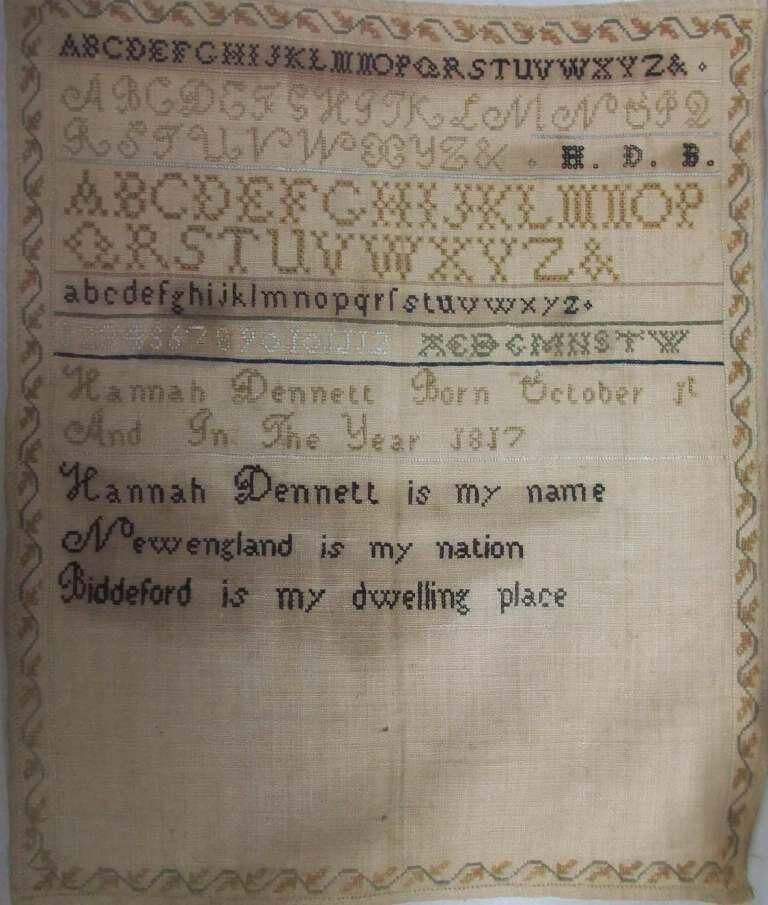 ABCDEFGHIJKLMNOPQRSTUVWXYZ& .
ABCDEFGHIJKLMNOPQ
RSTUVWXYZ& . H. D. B.
ABCDEFGHIJKLMNOP
QRSTUVWXYZ&
abcdefghijklmnopqrſstuvwxyz.
4 5 6 7 8 9 10 11 12 ACDGMNSTW
Hannah Dennett Born October 1st
And In The Year 1817
Hannah Dennett is my name
Newengland is my nation
Biddeford is my dwelling place